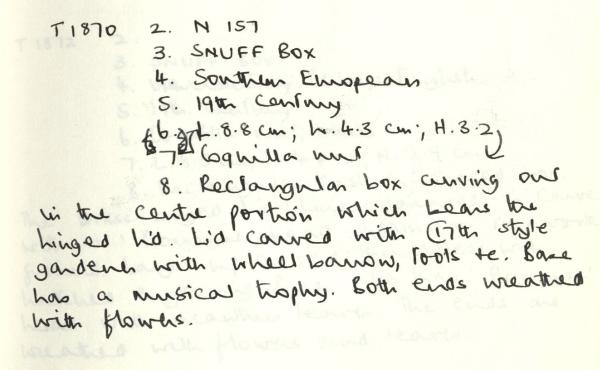 T1870 2. N 157
3. SNUFF BOX
4. Southern European
5. 19th Century
6. L. 8.8 cm; W. 4.3 cm; H. 3.2
7. Coquilla nut
8. Rectangular box curving out
in the centre portion which bears the
hinged lid. Lid carved with C17th style
gardener with wheel barrow, tools etc. Base
has a musical trophy. Both ends wreathed
with flowers.